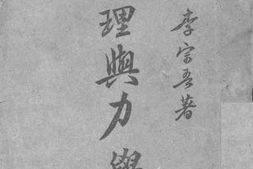 李宗吾著
理與力學